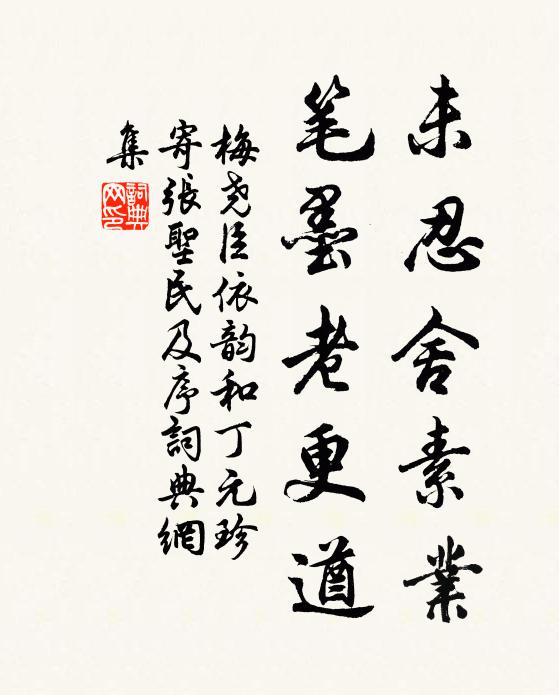 未忍舍素業
笔墨老更遒
梅尧臣依韵和丁元珍
寄張聖民及序詞典網
集
詞典网印